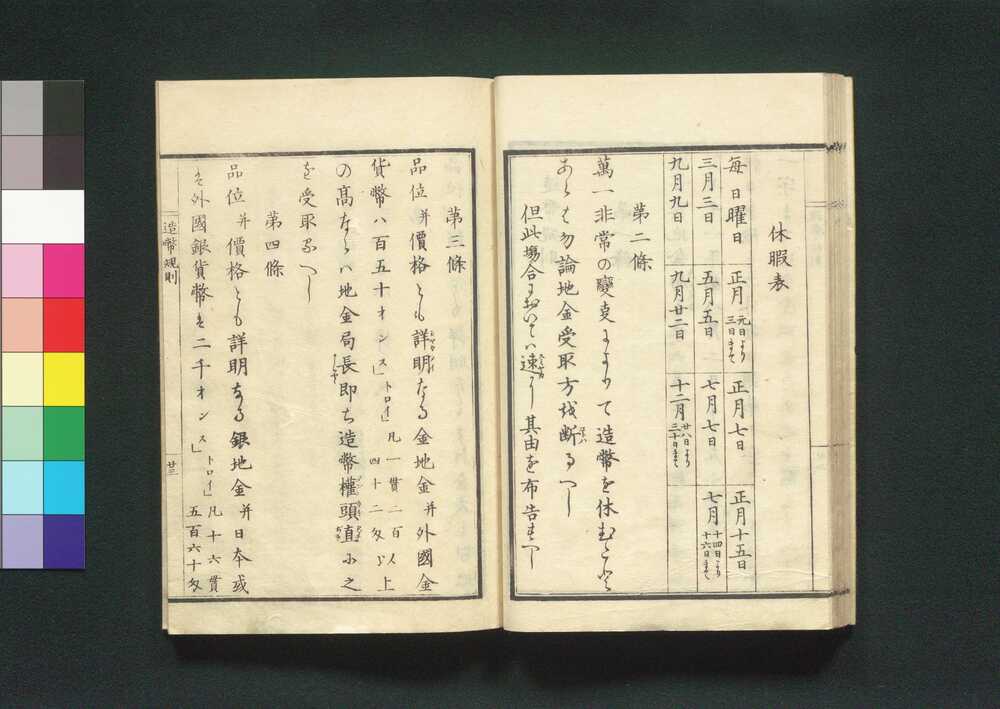 休暇表
毎日曜日 正月元日より三日まて 正月七日 正月十五日
三月三日 五月五日 七月七日 七月十四日より十六日まて
九月九日 九月廿二日 十二月廿八日より三十日まて
第二條
萬一非常の變事によりて造幣を休むこと
あらは勿論地金受取方を断るへし
但此場合においては速に其由を布告すへし
第三條
品位并價格とも詳明なる金地金并外國金
貨幣ハ百五十オンス「トロイ」凡一貫二百四十二匁以上
の髙ならハ地金局長即ち造幣權頭直に之
を受取るへし
第四條
品位并價格とも詳明なる銀地金并日本或
は外國銀貨幣は二千オンス「トロイ」凡十六貫五百六十匁
造幣規則
廿三